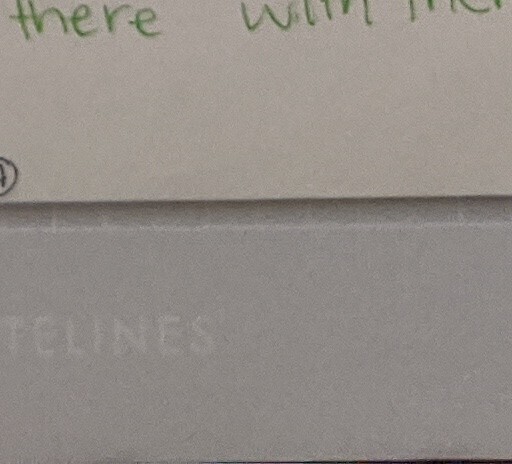 there with
TELINES